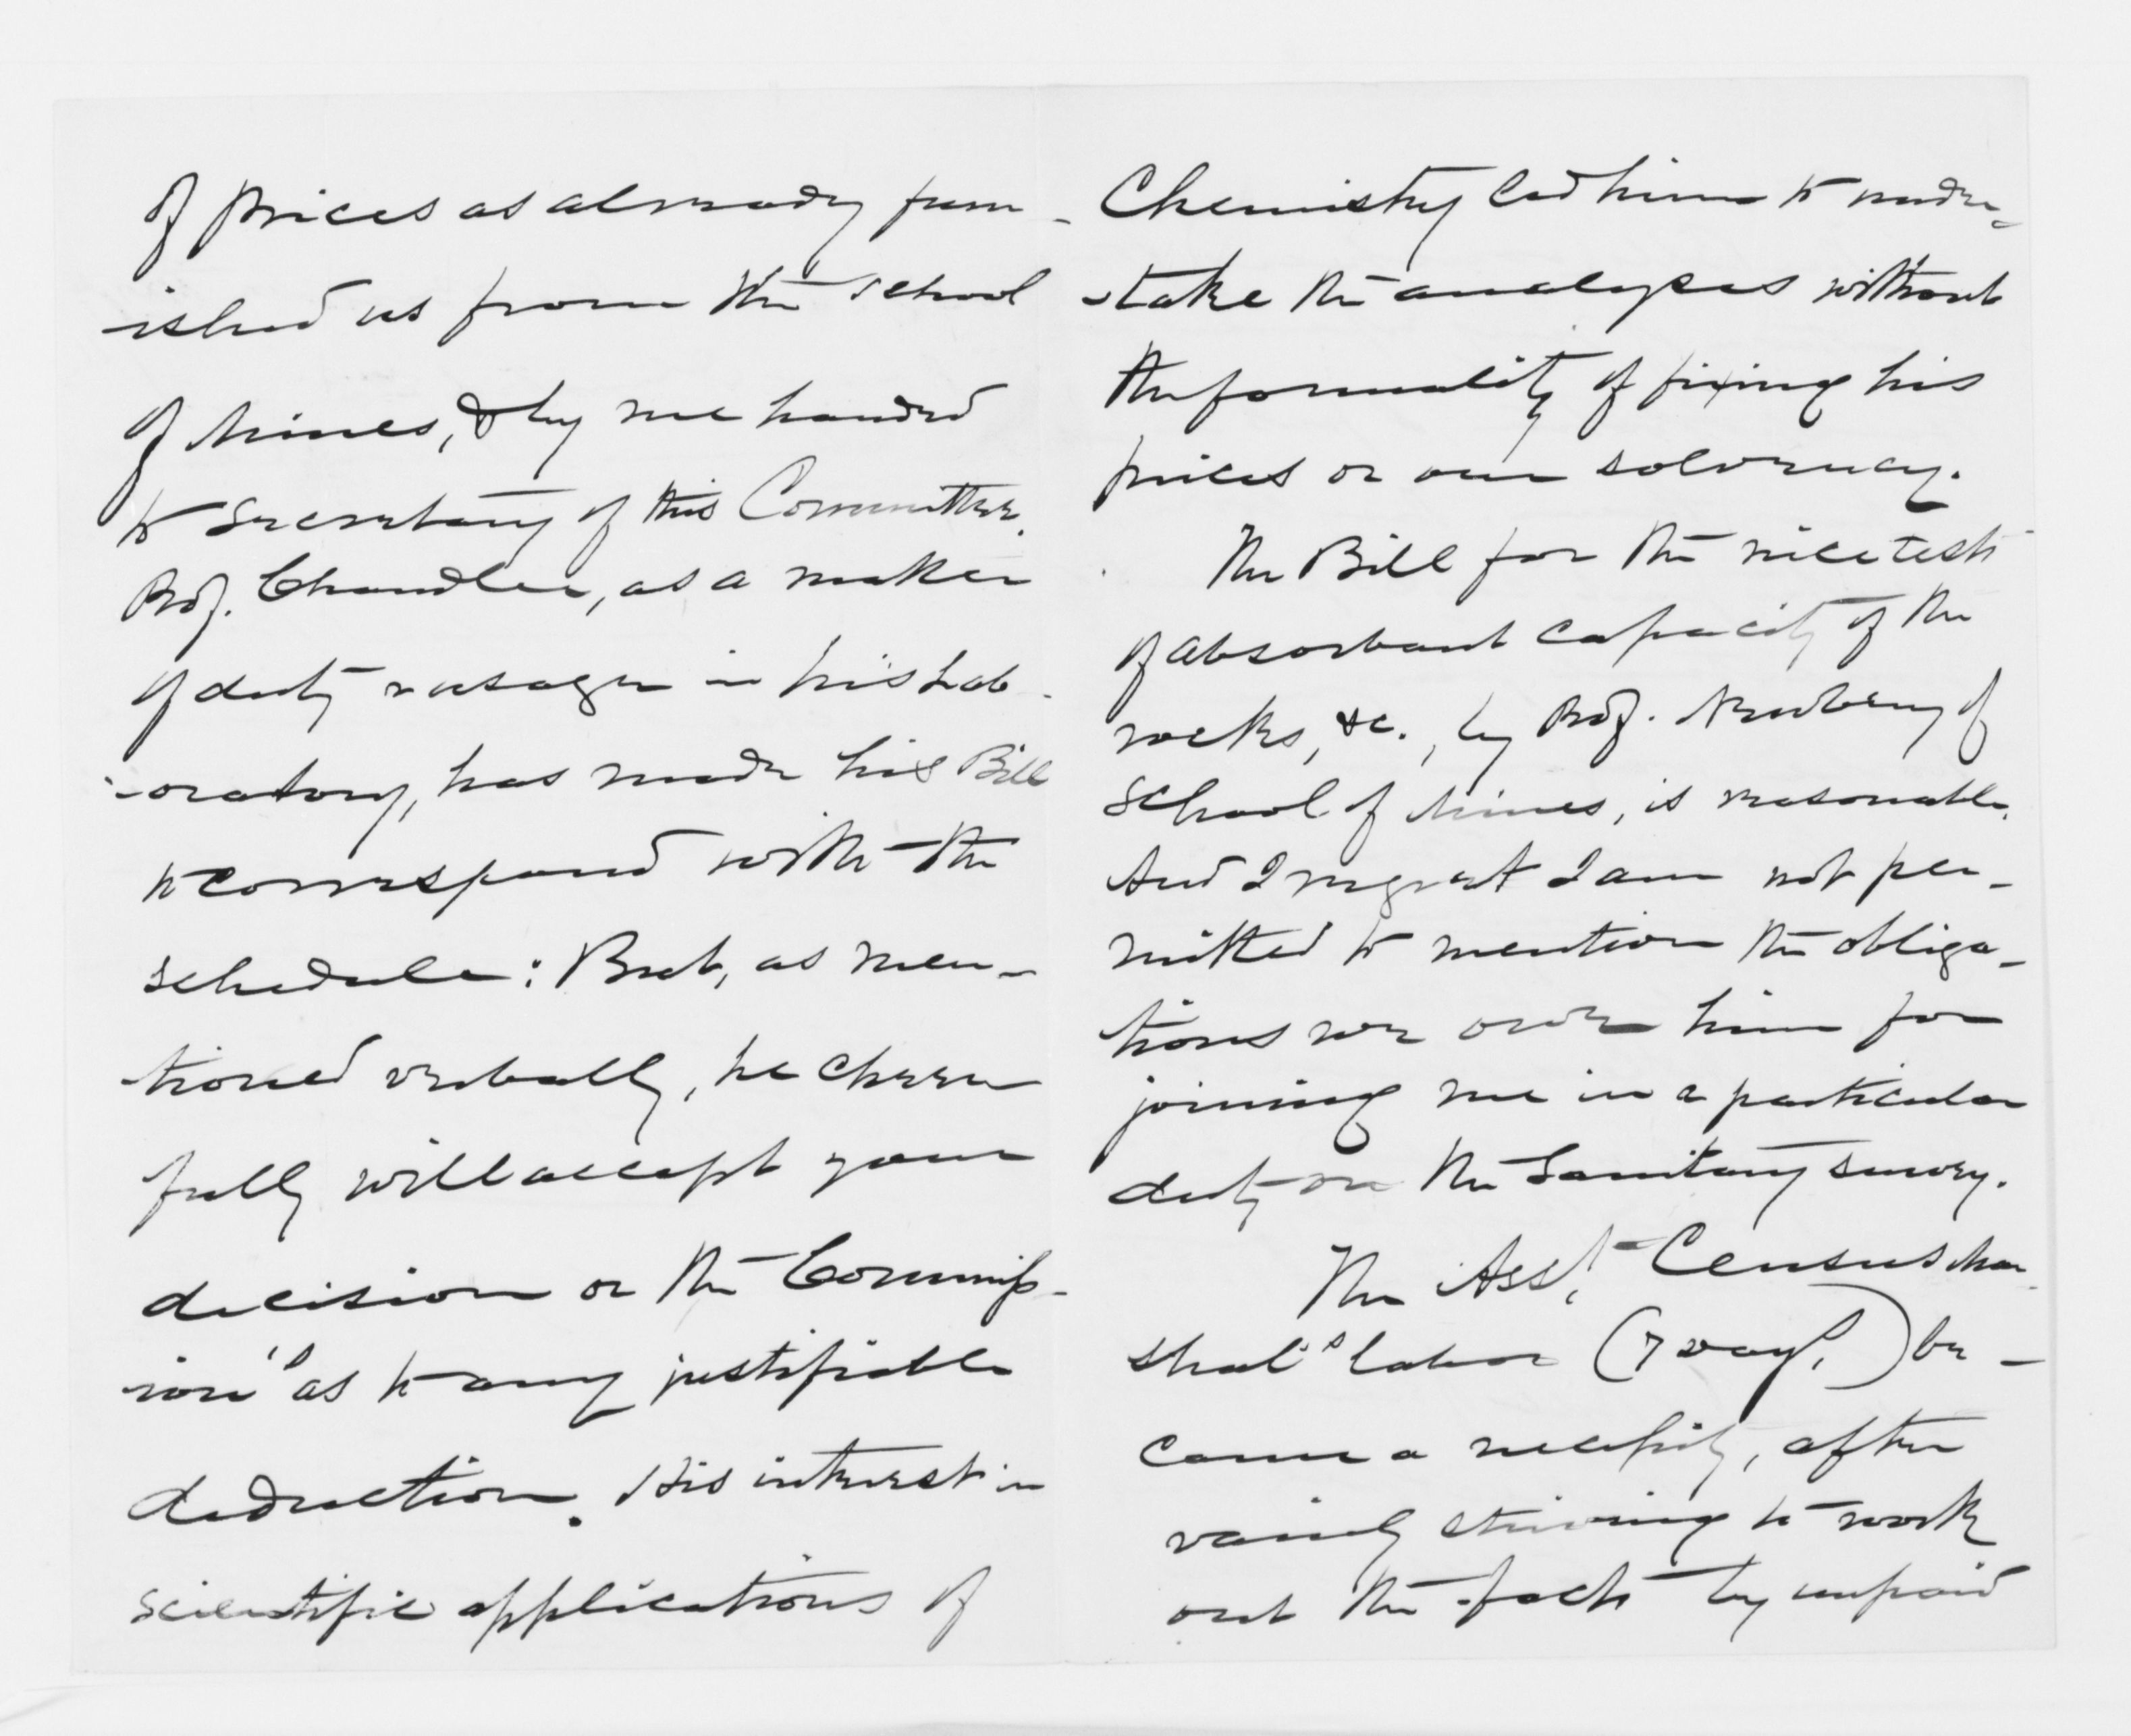 of prices as already furn-
-ished us from the School
of Mines, & by me handed
to Secretary of this Committee.
Prof. Chandler, as a matter
of duty & usage in his Lab-
-oratory, has made his Bill
to correspond with the
schedule: But, as men-
-tioned verbally, he cheer
fully will accept your
decision or the Commis-
sion's as to any justifiable
deduction. His interest in
scientific applications of
Chemistry led him to under-
-take the analyses without
the formality of fixing his
prices or our solvency.
The Bill for the nice tests
of absorbant capacity of the
rocks, &c., by Prof. Newberry of
School of Mines, is reasonable.
And I regret I am not per-
mitted to mention the obliga-
tions we owe him for
joining me in a particular
duty on the Sanitary survey.
The Asst. Census Mar-
shal's labor (7 days,) be-
came a necessity, after
vainly striving to work
out the facts by unpaid